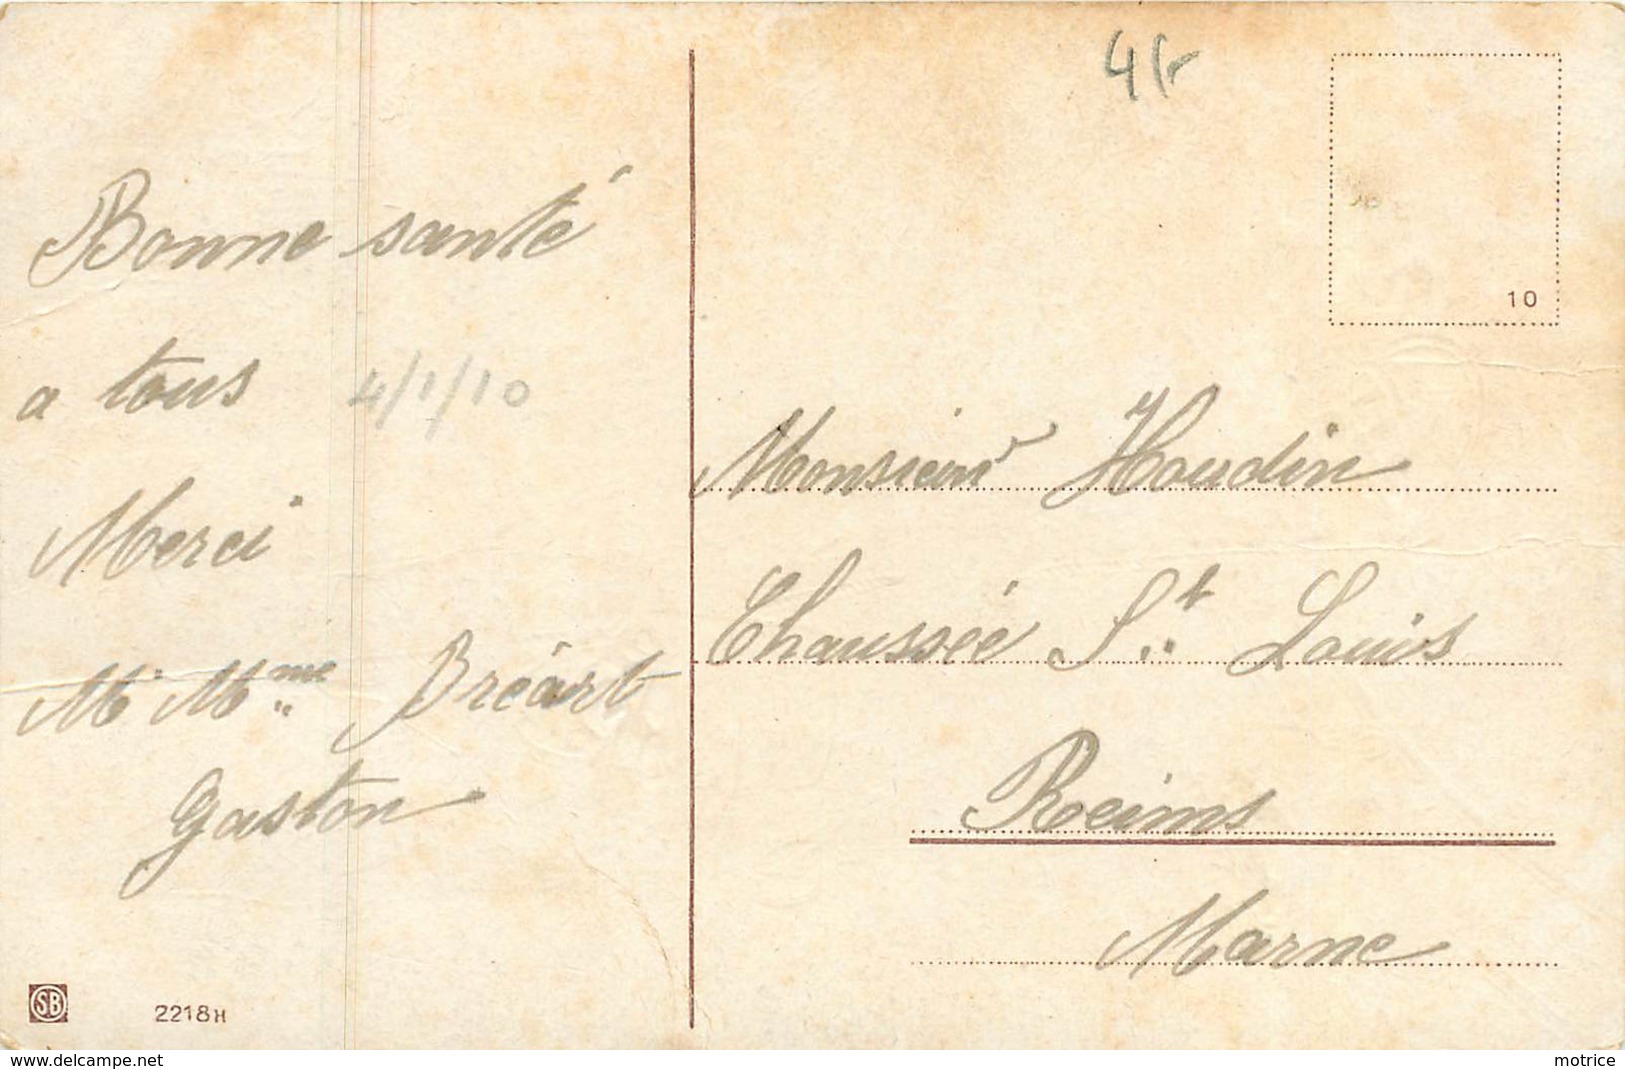 4fr
10
Bonne santé
a tous 4/1/10
Merci
Mr Mme Bréart
Gaston
Monsieur Houdin
Chaussée St. Louis
Reims
Marne
SB
2218H
www.delcampe.net
motrice